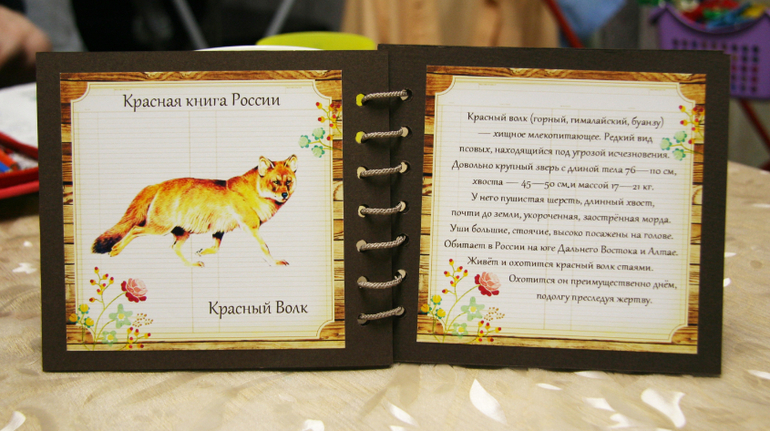 Красная книга России
Красный Волк
Красный волк (горный, гималайский, буанзу)
— хищное млекопитающее. Редкий вид
псовых, находящийся под угрозой исчезновения.
Довольно крупный зверь с длиной тела 76—110 см,
хвоста — 45—50 см,и массой 17—21 кг.
У него пушистая шерсть, длинный хвост,
почти до земли, укороченная, заострённая морда.
Уши большие, стоячие, высоко посажены на голове.
Обитает в России на юге Дальнего Востока и Алтае.
Живёт и охотится красный волк стаями.
Охотится он преимущественно днём,
подолгу преследуя жертву.